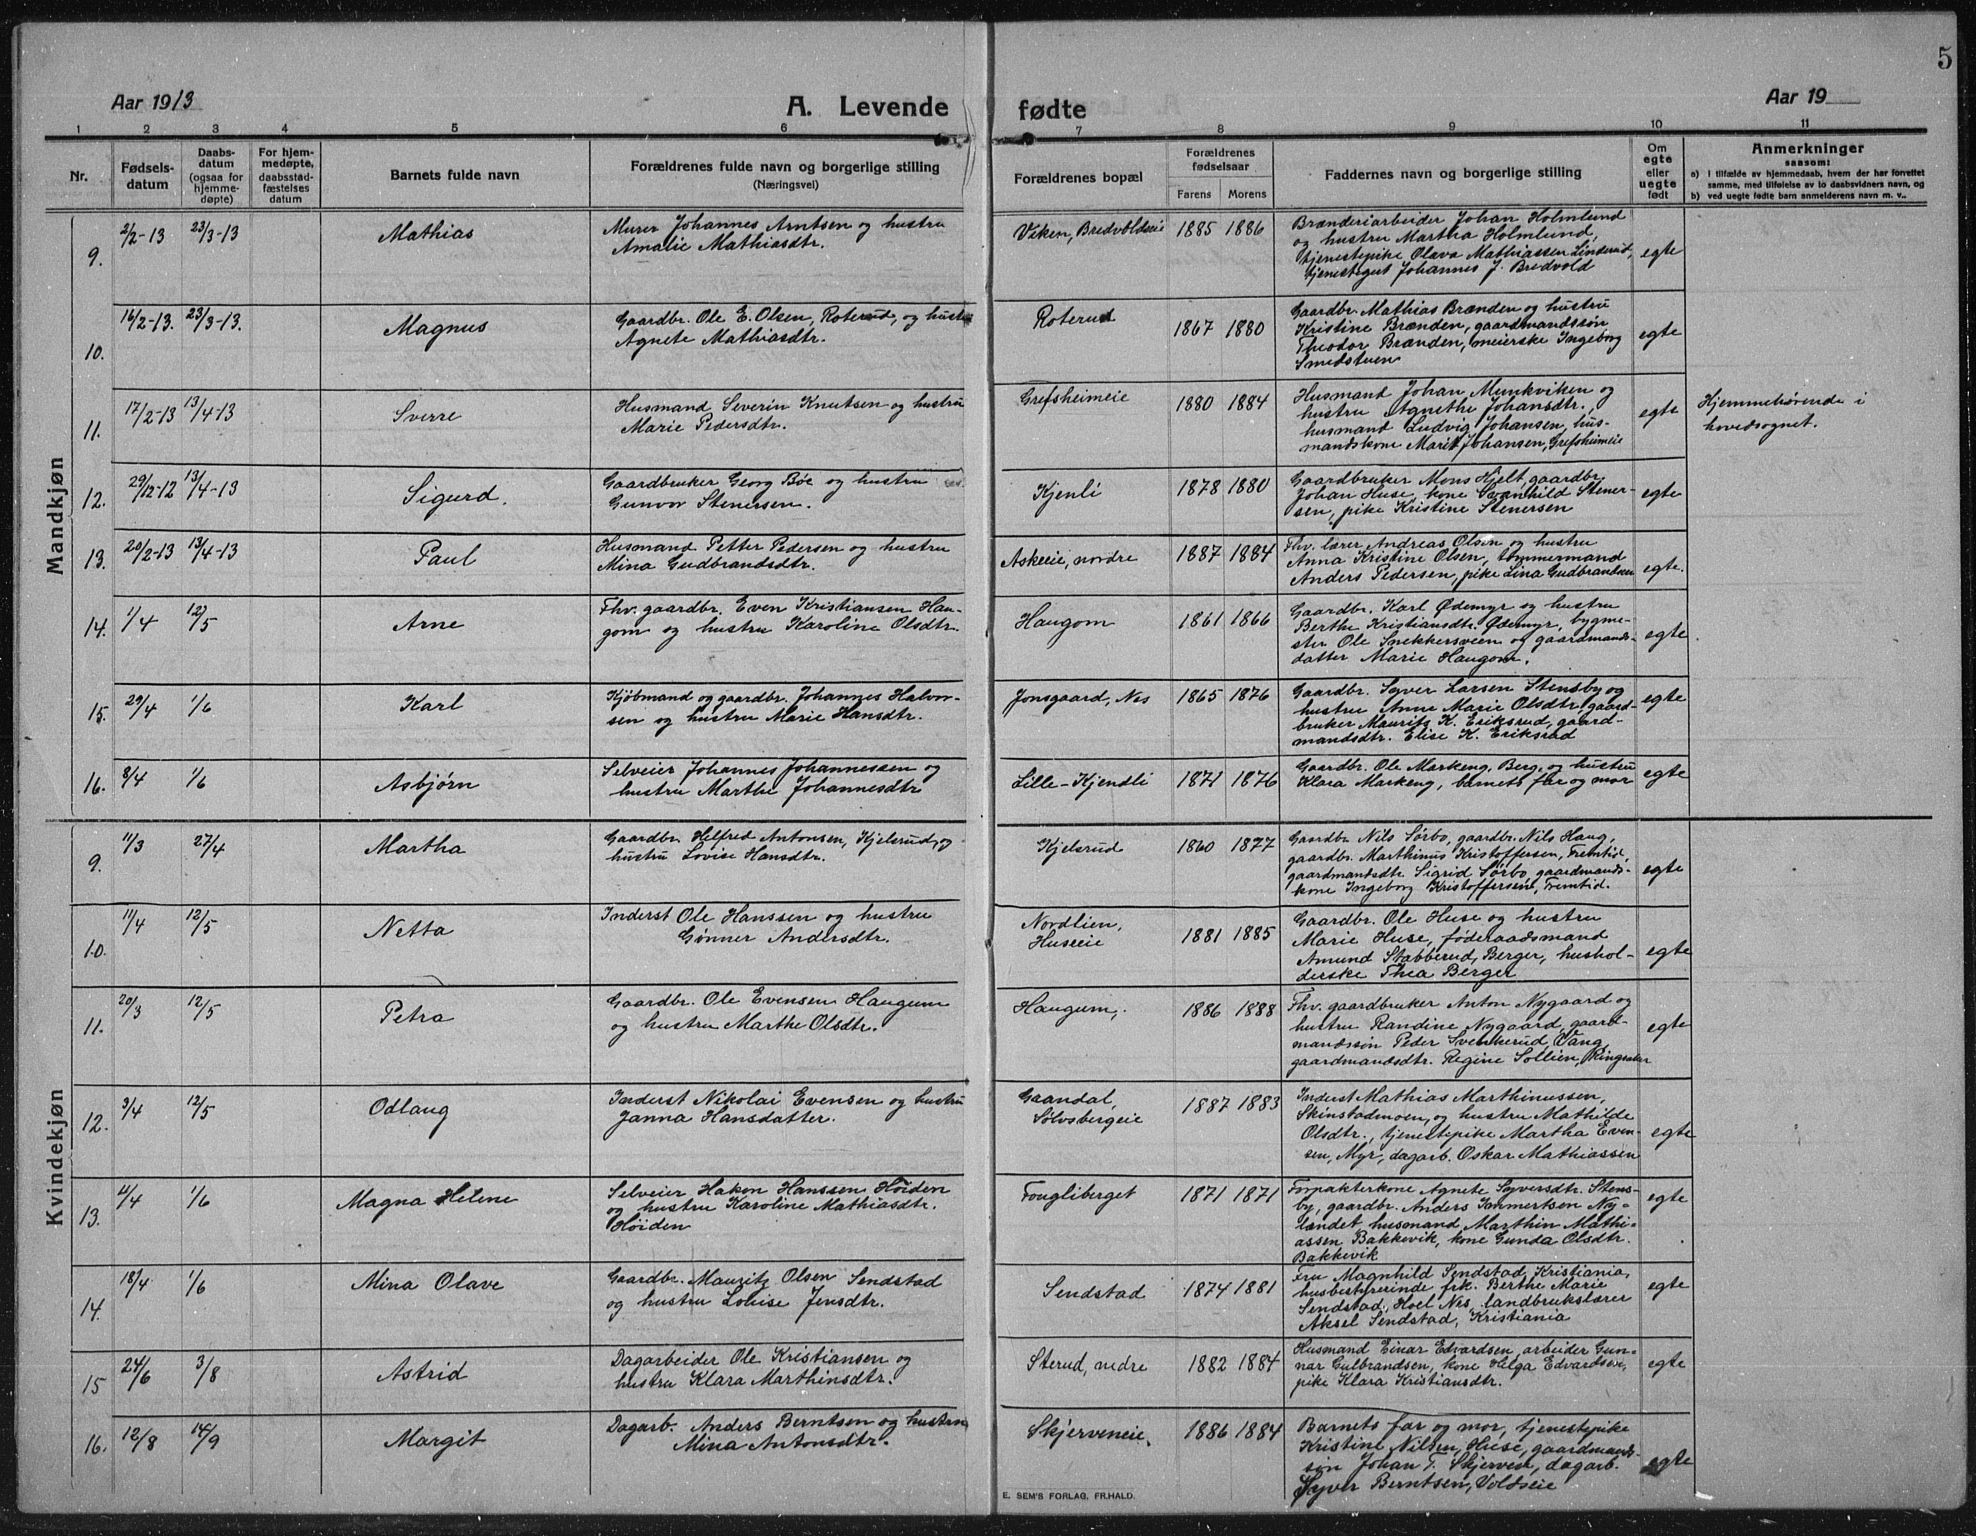 5
Aar 1913
A. Levende fødte
Aar 19
1 2 3 4 5 6 7 8 9 10 11
Nr.
Fødsels-
datum
Daabs-
datum
(ogsaa for
hjemme-
døpte)
For hjem-
medøpte,
daabsstad-
fæstelses
datum
Barnets fulde navn
Forældrenes fulde navn og borgerlige stilling
(Næringsvei)
Forældrenes bopæl
Forældrenes
fødselsaar
Farens Morens
Faddernes navn og borgerlige stilling
Om
egte
eller
uegte
født
Anmerkninger
saasom:
a) I tilfælde av hjemmedaab, hvem der har forrettet
samme, med tilføielse av to daabsvidners navn, og
b) ved uegte fødte barn anmelderens navn m. v..
Mandkjøn
9. 2/2-13 23/3-13 Mathias
Murer Johannes Arntsen og hustru
Amalie Mathiasdtr.
Viken, Bredvoldseie 1885 1886
Brænderiarbeider Johan Holmlund
og hustru Martha Holmlund,
tjenestepike Olava Mathiassen Linderud,
tjenestegut Johannes J. Bredvold
egte
10. 16/2-13. 23/3-13. Magnus
Gaardbr. Ole E. Olsen, Roterud, og hustru
Agnete Mathiasdtr.
Roterud 1867 1880
Gaardbr. Mathias Brænden og hustru
Kristine Brænden, gaardmandssøn
Theodor Brænden, meierske Ingeborg
Smedstuen
egte
11. 17/2-13 13/4-13 Sverre
Husmand Severin Knutsen og hustru
Marie Pedersdtr.
Grefsheimeie 1880 1884
Husmand Johan Munkviken og
hustru Agnethe Johansdtr.,
husmand Ludvig Johansen, hus-
mandskone Marit Johansen, Grefsheimeie
egte
Hjemmehørende i
hovedsognet.
12. 29/12-12 13/4-13 Sigurd.
Gaardbruker Georg Bøe og hustru
Gunvor Stenersen.
Kjenli 1878 1880
Gaardbruker Mons Hjelt, gaardbr.
Johan Huse, kone Svanhild Stener-
sen, pike Kristine Stenersen
egte
13. 20/2-13 13/4-13 Paul
Husmand Petter Pedersen og hustru
Mina Gudbrandsdtr.
Askeeie, nordre 1887 1884
Fhv. lærer Andreas Olsen og hustru
Anna Kristine Olsen, tømmermand
Anders Pedersen, pike Lina Gudbrandsen
egte.
14. 1/4 12/5 Arne
Fhv. gaardbr. Even Kristiansen Hau-
gom og hustru Karoline Olsdtr.
Haugom 1861 1866
Gaardbr. Karl Ødemyr og hustru
Berthe Kristiansdtr. Ødemyr, bygme-
ster Ole Snekkersveen og gaardmands-
datter Marie Haugom.
egte
15. 29/4 1/6 Karl
Kjøbmand og gaardbr. Johannes Halvor-
sen og hustru Marie Hansdtr.
Jonsgaard, Nes 1865 1876
Gaardbr. Syver Larsen Stensby og
hustru Anne Marie Olsdtr, gaard-
bruker Mauritz K. Eriksrud, gaard-
mandsdtr. Elise K. Eriksrud
egte
16. 8/4 1/6 Asbjørn
Selveier Johannes Johannessen og
hustru Marthe Johannesdtr
Lille-Kjendli 1871 1876
Gaardbr. Ole Markeng, Berg, og hustru
Klara Markeng, barnets far og mor
egte
Kvindekjøn
9. 11/3 27/4 Martha
Gaardbr. Helfred Antonsen, Kjelsrud, og
hustru Lovise Hansdtr.
Kjelsrud 1860 1877
Gaardbr Nils Sørbo, gaardbr. Nils Haug,
gaardbr. Marthinus Kristoffersen, Fremtid,
gaardmandsdtr. Sigrid Sørbo, gaardmands-
kone Ingeborg Kristoffersen, Fremtid.
egte
10. 11/4 12/5 Netta
Inderst Ole Hanssen og hustru
Gønner Andersdtr.
Nordlien,
Huseeie
1881 1885
Gaardbr. Ole Huse og hustru
Marie Huse, føderaadsmand
Amund Stabberud, Berger, hushol-
derske Thea Berger
egte
11. 20/3 12/5 Petra
Gaardbr. Ole Evensen Haugum
og hustru Marthe Olsdtr.
Haugum, 1886 1888
Fhv. gaardbruker Anton Nygaard og
hustru Randine Nygaard, gaard-
mandssøn Peder Svenkerud, Vang,
gaardmandsdtr. Regine Sollien, Ringsaker
egte
12. 3/4 12/5 Odlaug
Inderst Nikolai Evensen og hustru
Janna Hansdatter.
Gaardal,
Sølvsbergeie
1887 1883
Inderst Mathias Marthinussen,
Skinstadmoen, og hustru Mathilde
Olsdtr., tjenestepike Martha Even-
sen, Myr, dagarb. Oskar Mathiassen
egte
13. 11/4 1/6 Magna Helene
Selveier Hakon Hanssen Høiden
og hustru Karoline Mathiasdtr.
Høiden
Fougliberget 1871 1871
Forpakterkone Agnete Syversdtr. Stens-
by, gaardbr. Anders Ingmertsen Ny-
landet, husmand Marthin Mathi-
assen Bakkevik, kone Gunda Olsdtr.
Bakkevik
egte
14. 18/4 1/6 Mina Olave
Gaardbr. Mauritz Olsen Sendstad
og hustru Louise Jensdtr.
Sendstad 1874 1881
Fru Magnhild Sendstad, Kristiania,
husbestyrerinde frk. Berthe Marie
Sendstad, Hoel Nes, landbrukslærer
Aksel Sendstad, Kristiania
egte
15 24/6 3/8 Astrid
Dagarbeider Ole Kristiansen og
hustru Klara Marthinsdtr.
Sterud, nedre 1882 1884
Husmand Einar Edvardsen, arbeider Gun-
nar Gulbrandsen, kone Helga Edvardsen,
pike Klara Kristiansdtr.
egte
16. 12/8 14/9 Margit
Dagarb. Anders Berntsen og hustru
Mina Antonsdtr.
Skjerveneie, 1886 1884
Barnets far og mor, tjenestepike
Kristine Nilsen, Huse, gaardmands-
søn Johan T. Skjerven, dagarb.
Syver Berntsen, Voldseie
egte
E. SEM'S FORLAG, FR.HALD.